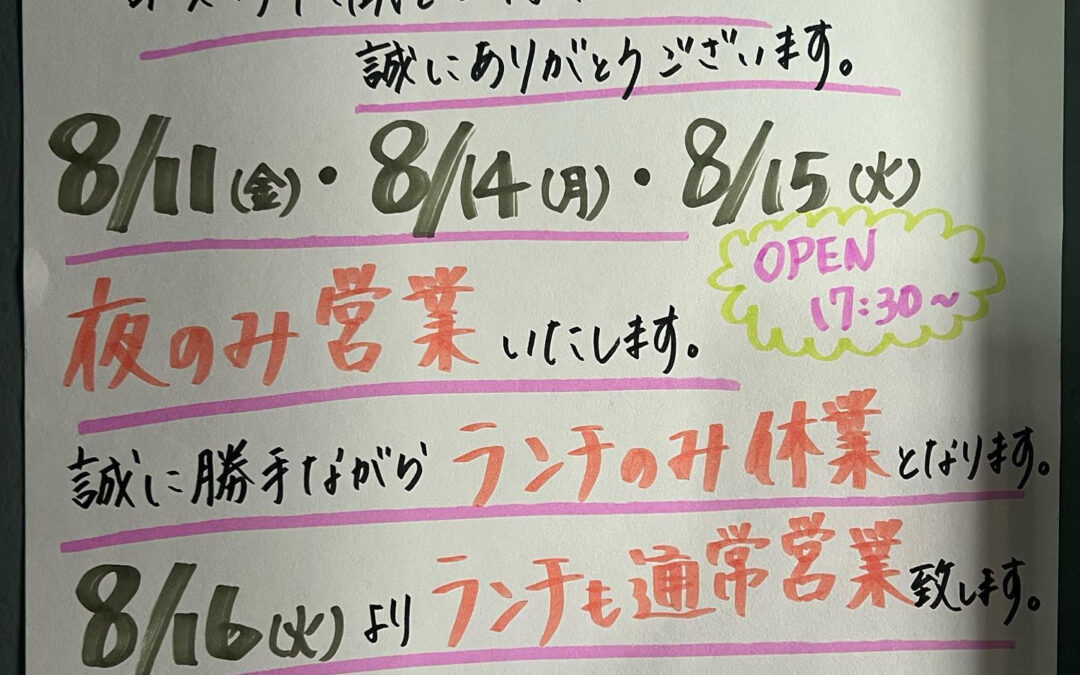 誠にありがとうございます。
8/11(金)・8/14(月)・8/15(火)
OPEN
17:30~
夜のみ営業いたします。
誠に勝手ながらランチのみ休業となります。
8/16(火)よりランチも通常営業致します。